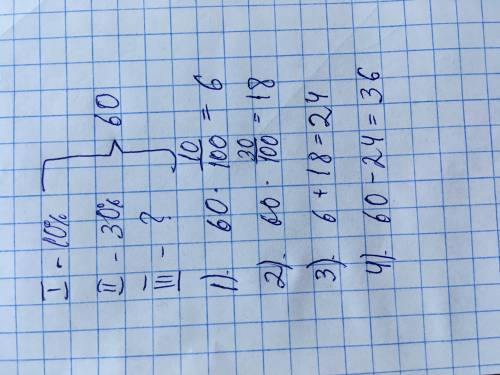 I - 10%
II - 30% } 60
III - ?
1). 60 · 10/100 = 6
2). 60 · 30/100 = 18
3). 6 + 18 = 24
4). 60 - 24 = 36